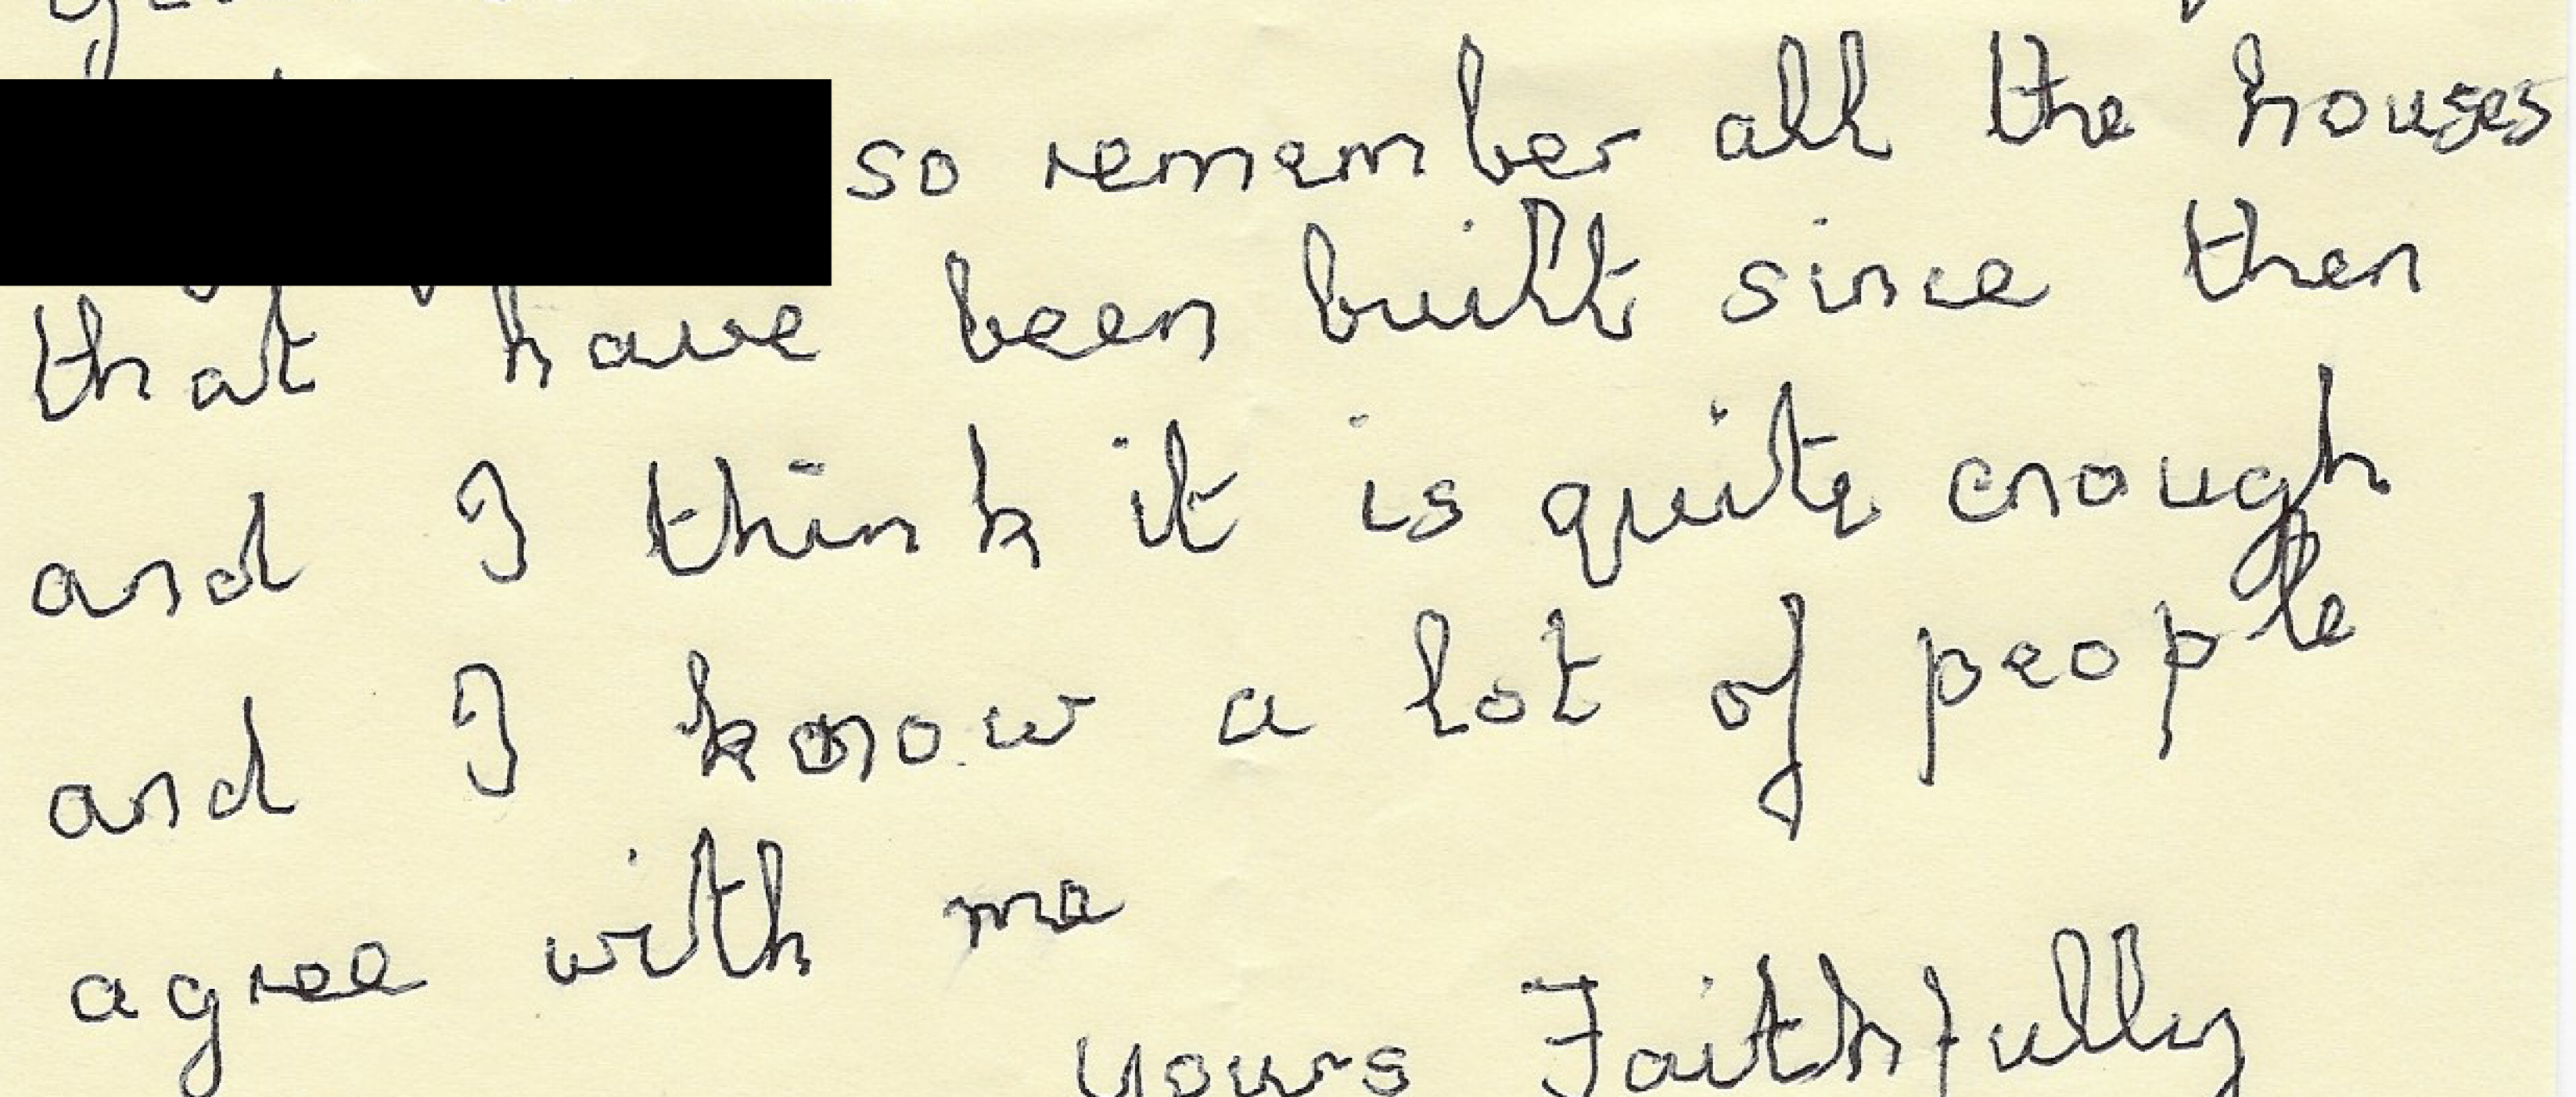 so remember all the houses
that have been built since then
and I think it is quite enough
and I know a lot of people
agree with me
yours Faithfully